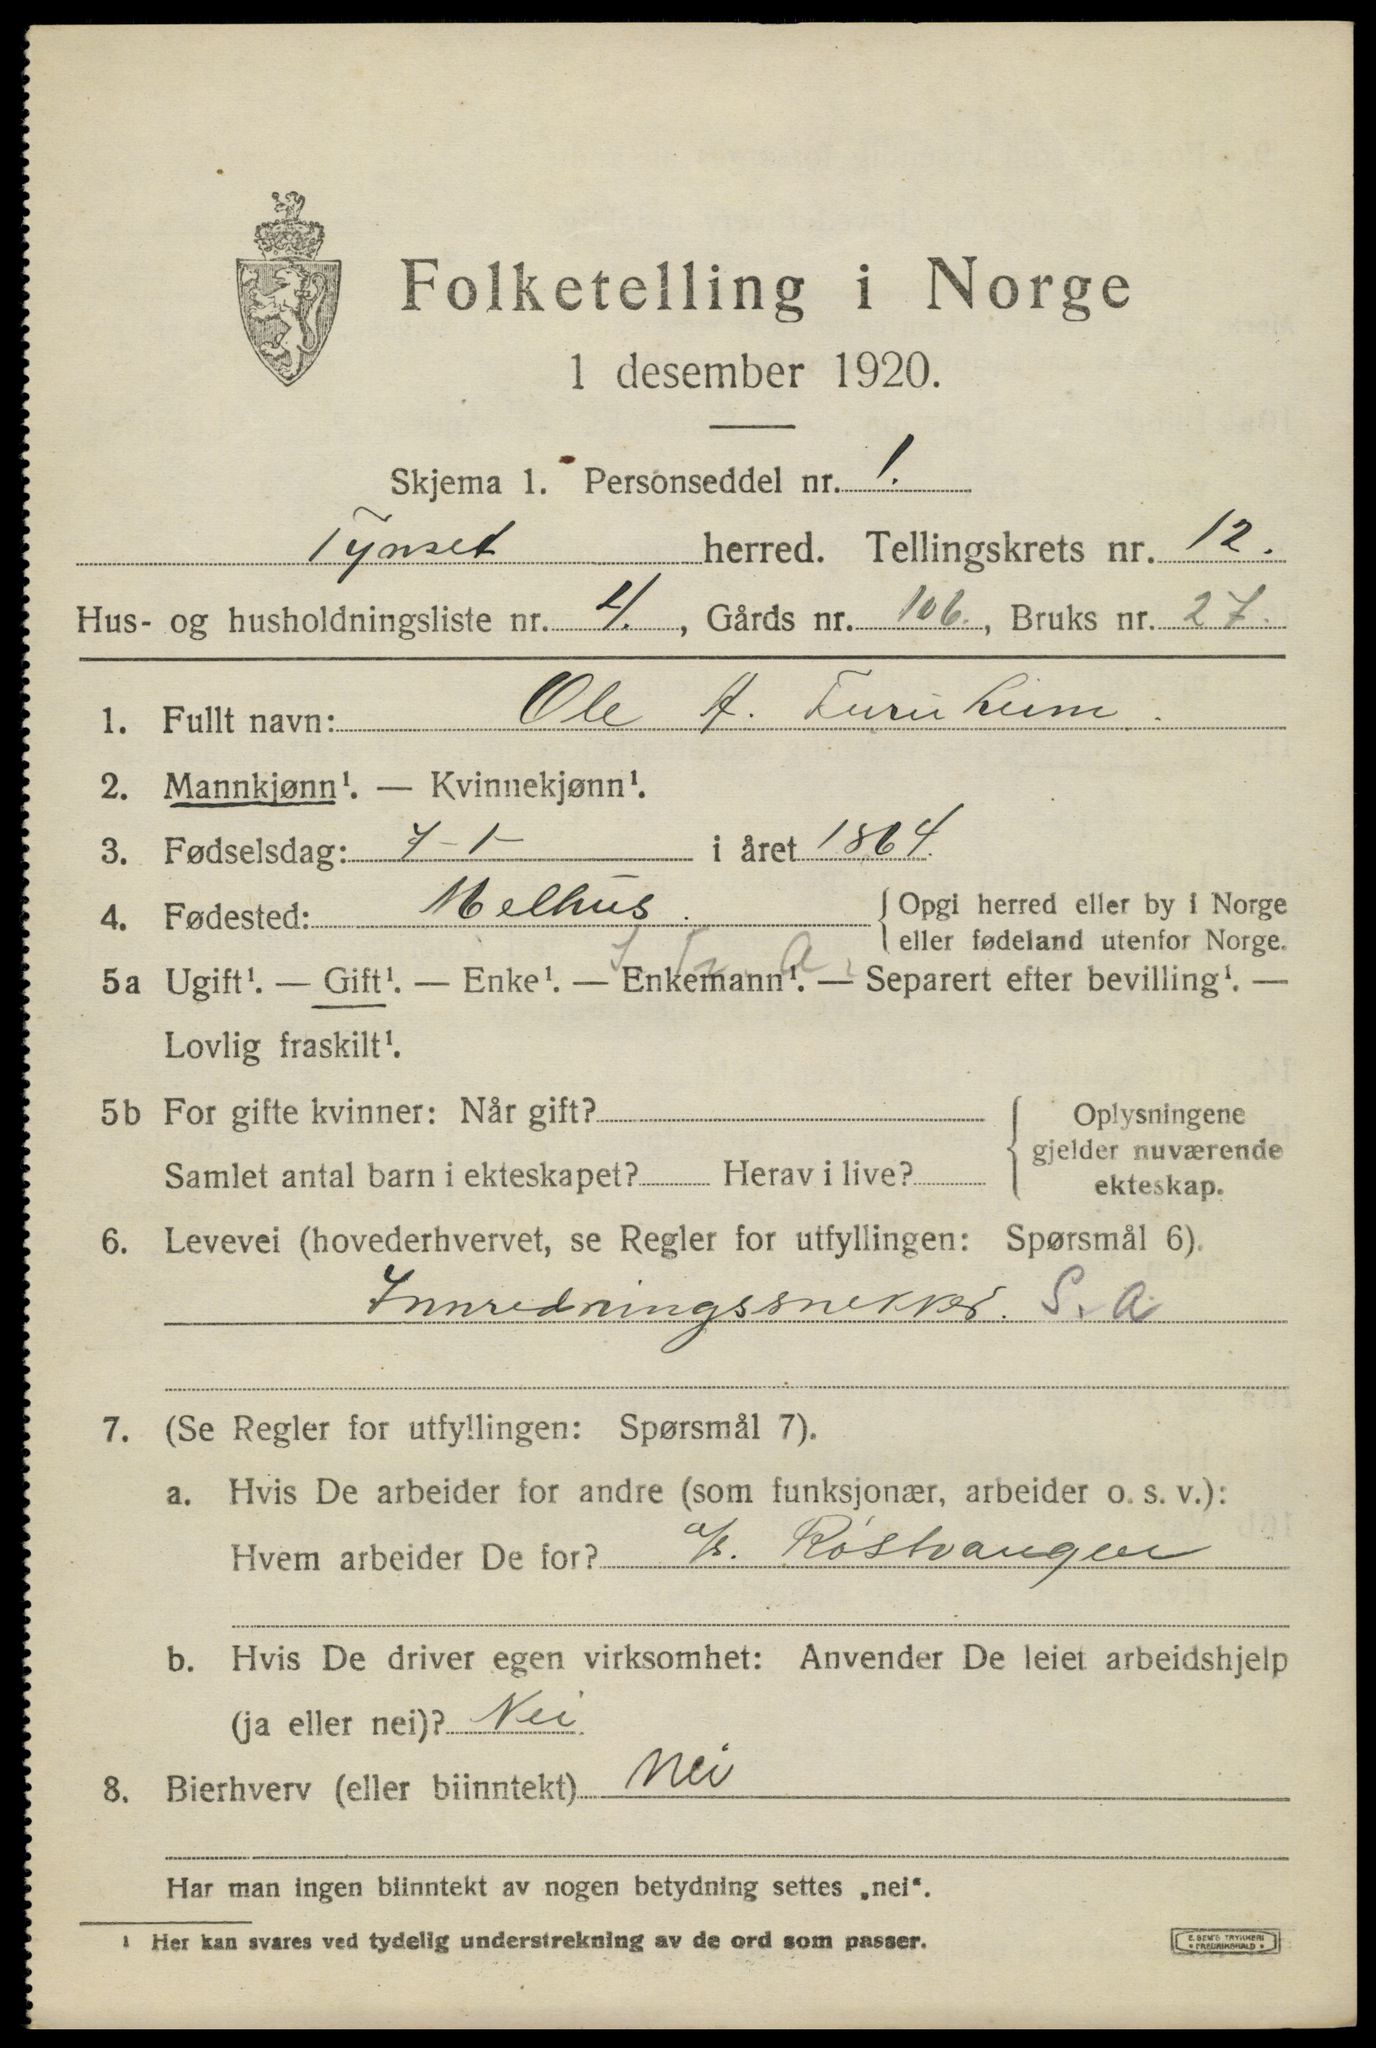 Folketelling i Norge
1 desember 1920.
Skjema 1. Personseddel nr. 1.
Tynset herred. Tellingskrets nr. 12.
Hus- og husholdningsliste nr. 4., Gårds nr. 106., Bruks nr. 27.
1. Fullt navn: Ole A. Furuheim.
2. Mannkjønn¹. — Kvinnekjønn¹.
3. Fødselsdag: 7-1- i året 1864.
4. Fødested: Melhus. { Opgi herred eller by i Norge
eller fødeland utenfor Norge.
5a Ugift¹. — Gift¹. — Enke¹. — Enkemann¹. — Separert efter bevilling¹. —
Lovlig fraskilt¹.
5b For gifte kvinner: Når gift?
Samlet antal barn i ekteskapet? Herav i live?
{ Oplysningene
gjelder nuværende
ekteskap.
6. Levevei (hovederhvervet, se Regler for utfyllingen: Spørsmål 6).
Innredningssnekker. S. A
7. (Se Regler for utfyllingen: Spørsmål 7).
a. Hvis De arbeider for andre (som funksjonær, arbeider o. s. v.):
Hvem arbeider De for? a/s. Røstvangen
b. Hvis De driver egen virksomhet: Anvender De leiet arbeidshjelp
(ja eller nei)? Nei.
8. Bierhverv (eller biinntekt) Nei
Har man ingen biinntekt av nogen betydning settes „nei“.
¹ Her kan svares ved tydelig understrekning av de ord som passer.
E. SEM'S TRYKKERI
• FREDRIKSHALD •